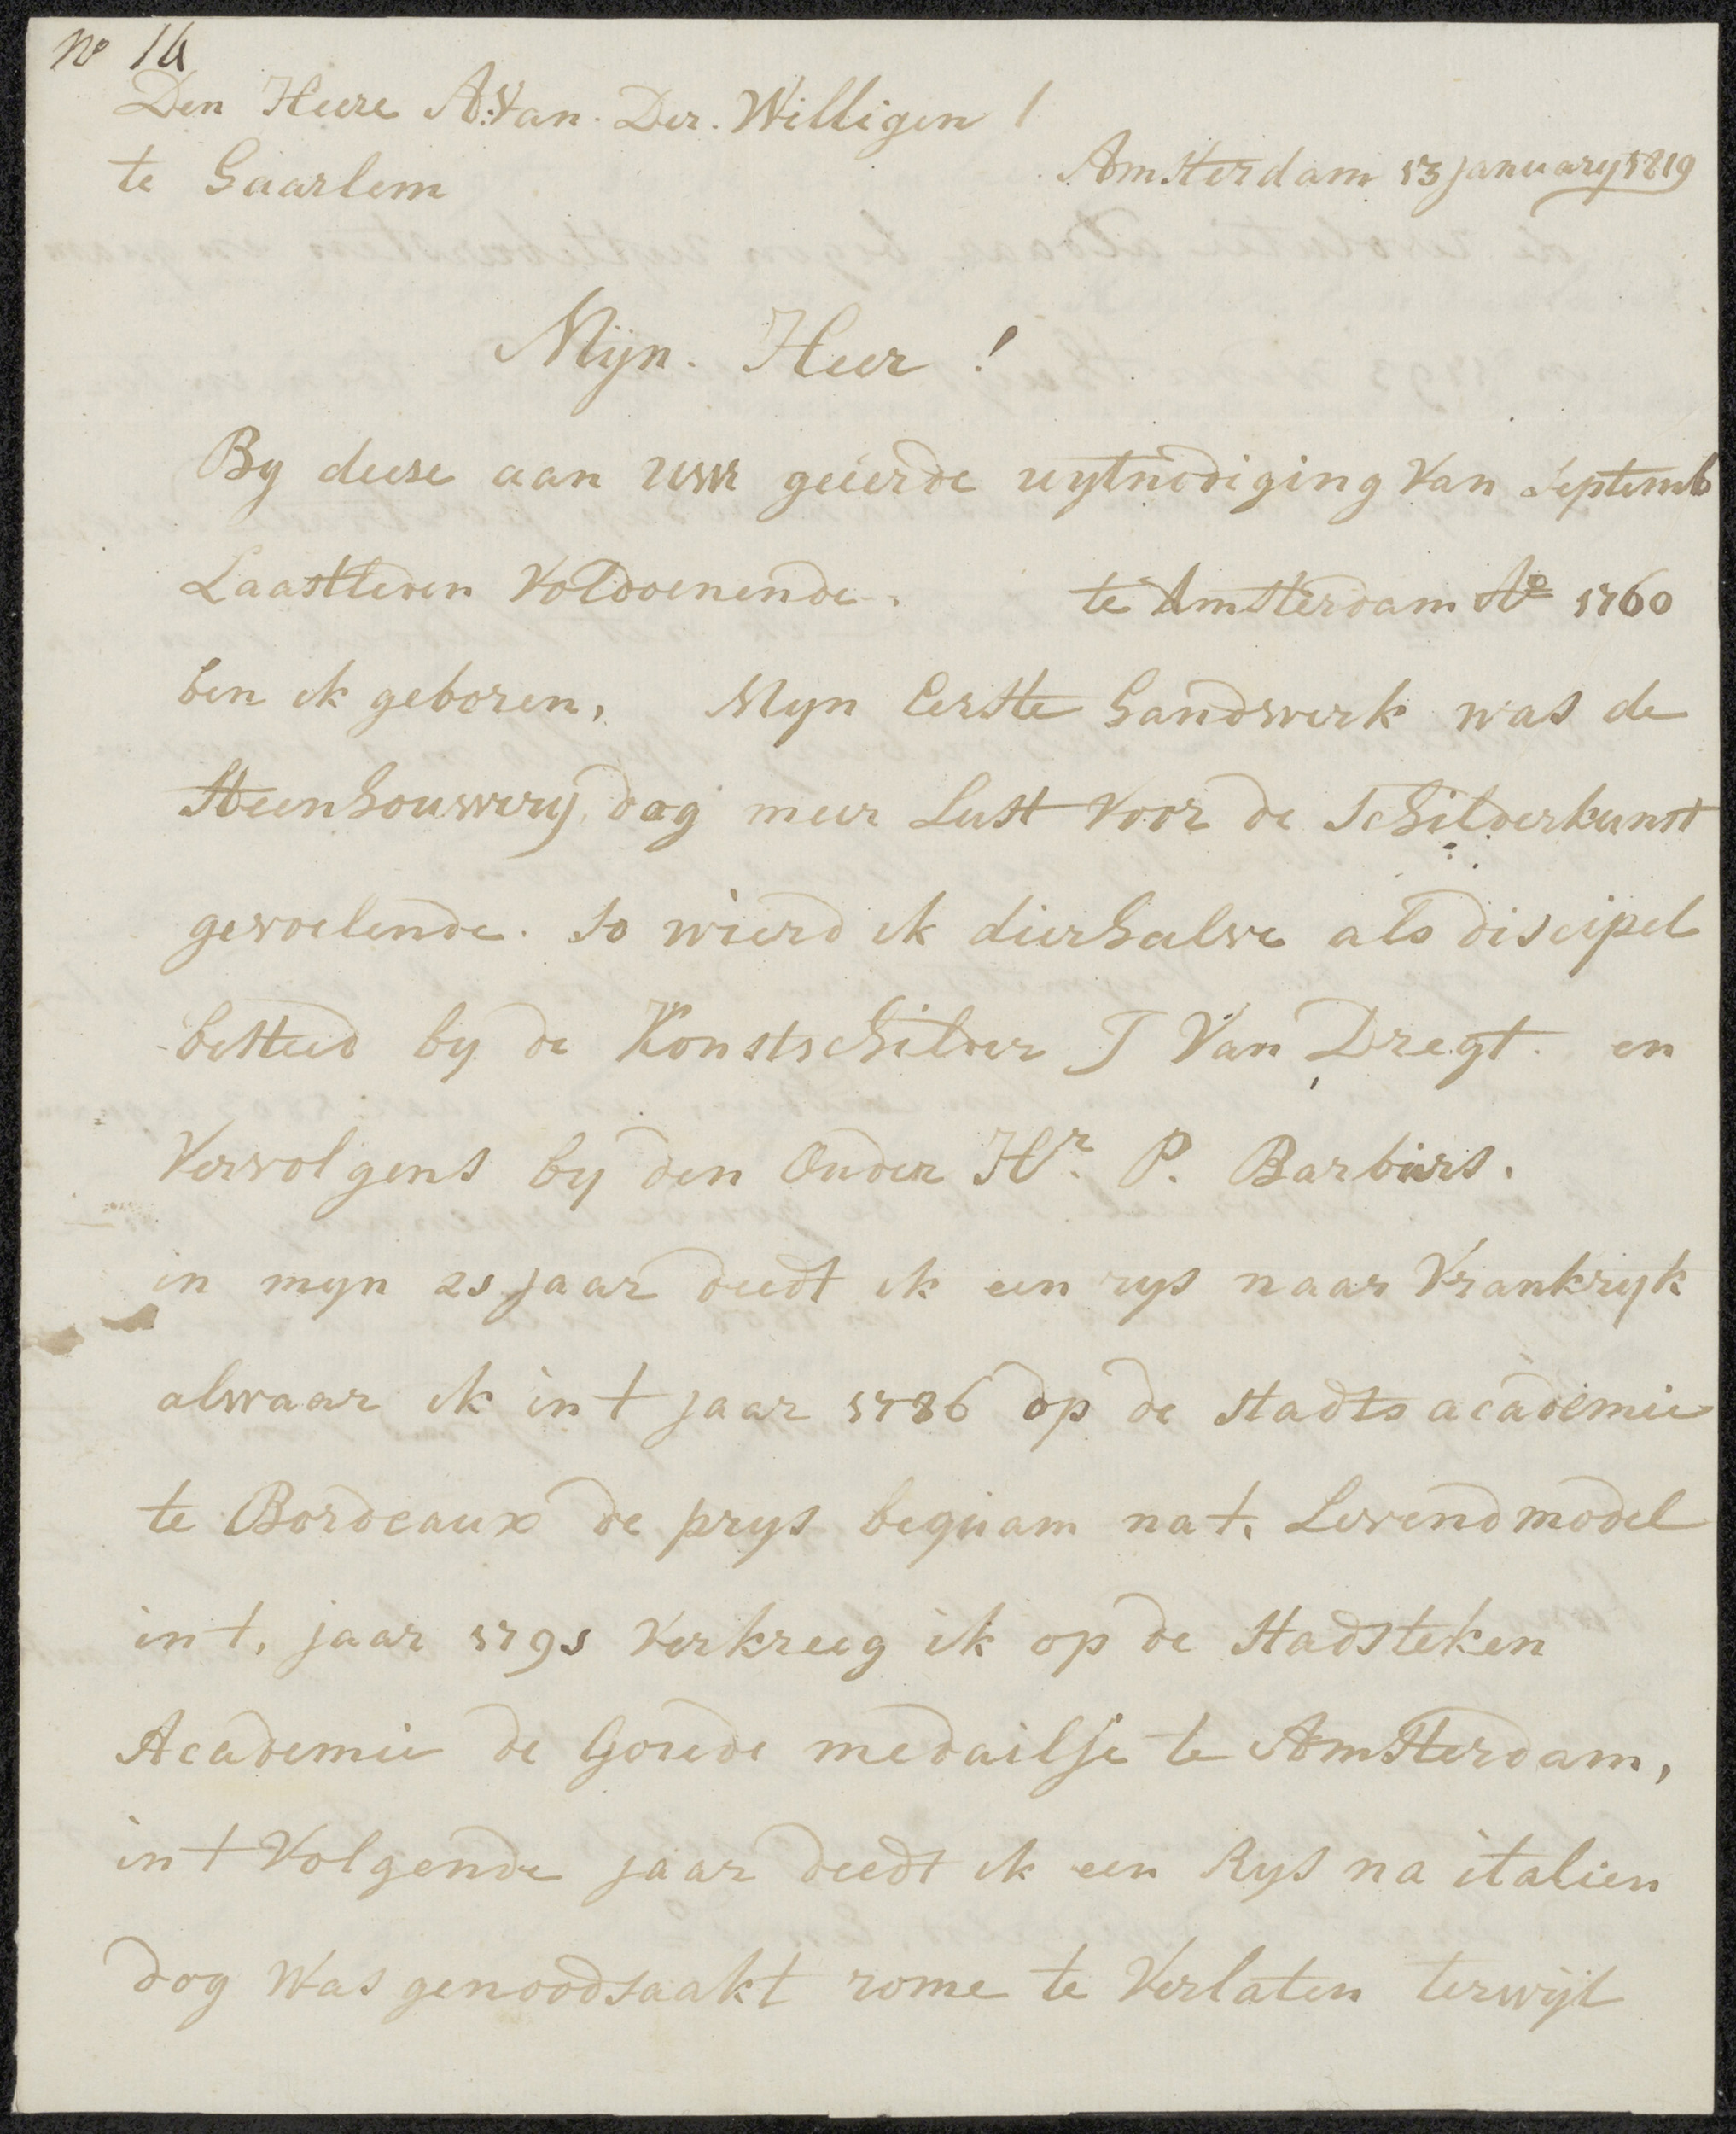 No 16
Den Heere A: Van. Der. Willigen /
te Haarlem
Amsterdam 13 january 1819
Mijn. Heer !
By deese aan UWE geëerde uytnodiging Van Septemb
Laastleden Voldoenende. te Amsterdam Ao 1760
ben ik geboren, Myn Eerste handwerk was de
Steenhouwery, dog meer Lust Voor de Schilderkunst
gevoelende. so wierd ik dierhalve als discipel
besteed by de Konstschilder J Van Dregt. en
Vervolgens by den Ouden Hr. P. Barbiers.
in myn 25 jaar deedt ik een rys naar Vrankryk
alwaar ik in t jaar 1786 op de stadts academie
te Bordeaux de prys bequam na t. Levend model
in t. jaar 1791 Verkreeg ik op de Stadsteken
Academie de Goude medailje te Amsterdam,
in t Volgende jaar deedt ik een Rys na italien
dog Was genoodsaakt rome te Verlaten terwijl